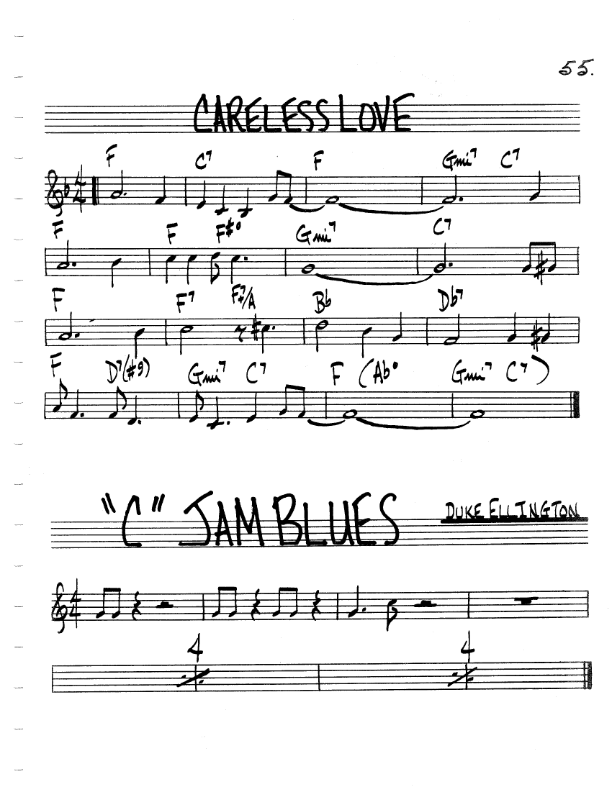 55.
CARELESS LOVE
F C7 F Gmi7 C7
4
4
F F F#o Gmi7 C7
F F7 F7/A Bb Db7
F D7(#9) Gmi7 C7 F (Abo Gmi7 C7)
"C" JAM BLUES DUKE ELLINGTON
4
4
4 4